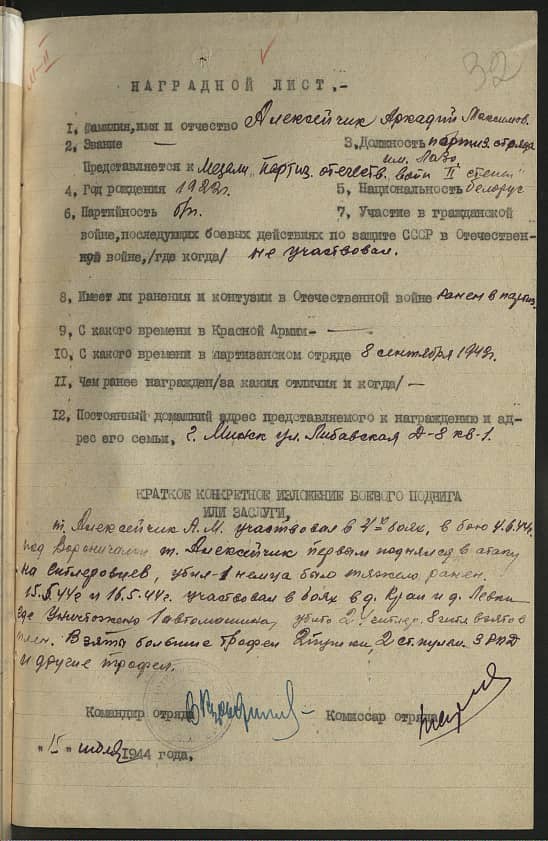 32
НАГРАДНОЙ ЛИСТ.-
1, Фамилия,имя и отчество Алексейчик Аркадий Максимов.
2, Звание — 3,Должность партиз. отряда
им. Лазо
Представляется к Медали „Партиз. отечеств. войн II степени"
4, Год рождения 1922г. 5, Национальность белорус
6, Партийность б/п. 7, Участие в гражданской
войне,последующих боевых действиях по защите СССР в Отечествен-
ной войне,/где когда/ не участвовал.
8, Имеет ли ранения и контузии в Отечественной войне ранен в партиз.
9, С какого времени в Красной Армии- —
10, С какого времени в партизанском отряде 8 сентября 1942г.
11, Чем ранее награжден/за какия отличия и когда/ —
12, Постоянный домашний адрес представляемого к награждению и ад-
рес его семьи, г. Минск ул. Либавская Д-8 кв-1.
КРАТКОЕ КОНКРЕТНОЕ ИЗЛОЖЕНИЕ БОЕВОГО ПОДВИГА
ИЛИ ЗАСЛУГИ.
т. Алексейчик А.М. участвовал в боях, в бою 4.6.44г.
под т. Алексейчик первым поднялся в атаку
на убил-1 немца был тяжело ранен.
15.5.44г и 16.5.44г. участвовал в боях в д. и д. Левки
где уничтожено 1 автомашина, убито 8 взято в
плен. Взяты большие трофеи 2 ст. пулем. 3 РПД
и другие трофеи.
Командир отряда Комиссар отряда
"15" июля 1944 года.